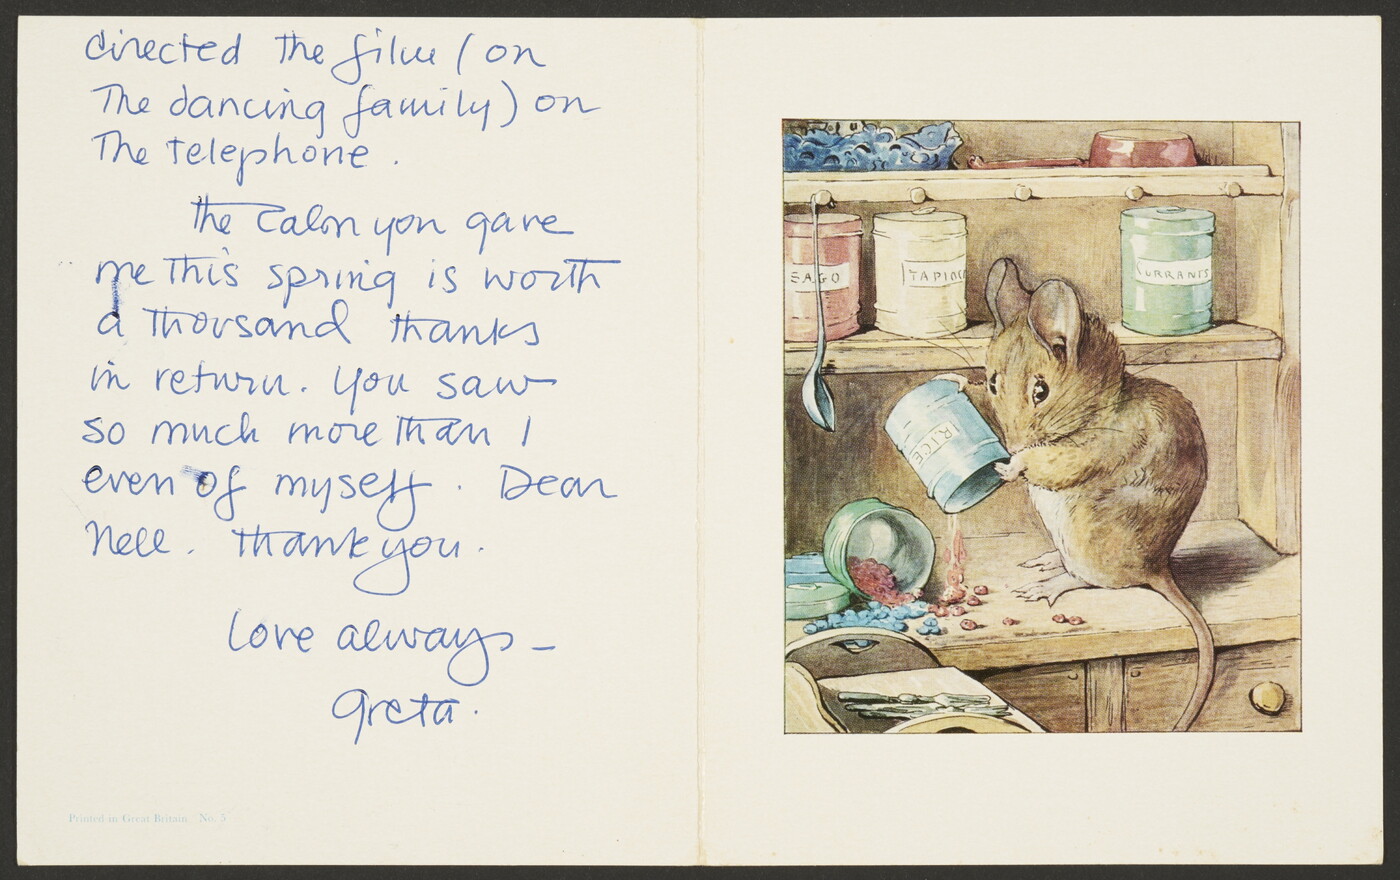 directed the film (on
The dancing family) on
The telephone.
The calm you gave
me This spring is worth
a Thousand thanks
in return. You saw
so much more Than I
even of myself. Dear
Nell. Thank you.
Love always –
Greta.
Printed in Great Britain No. 5
SAGO
TAPIOCA
CURRANTS
RICE